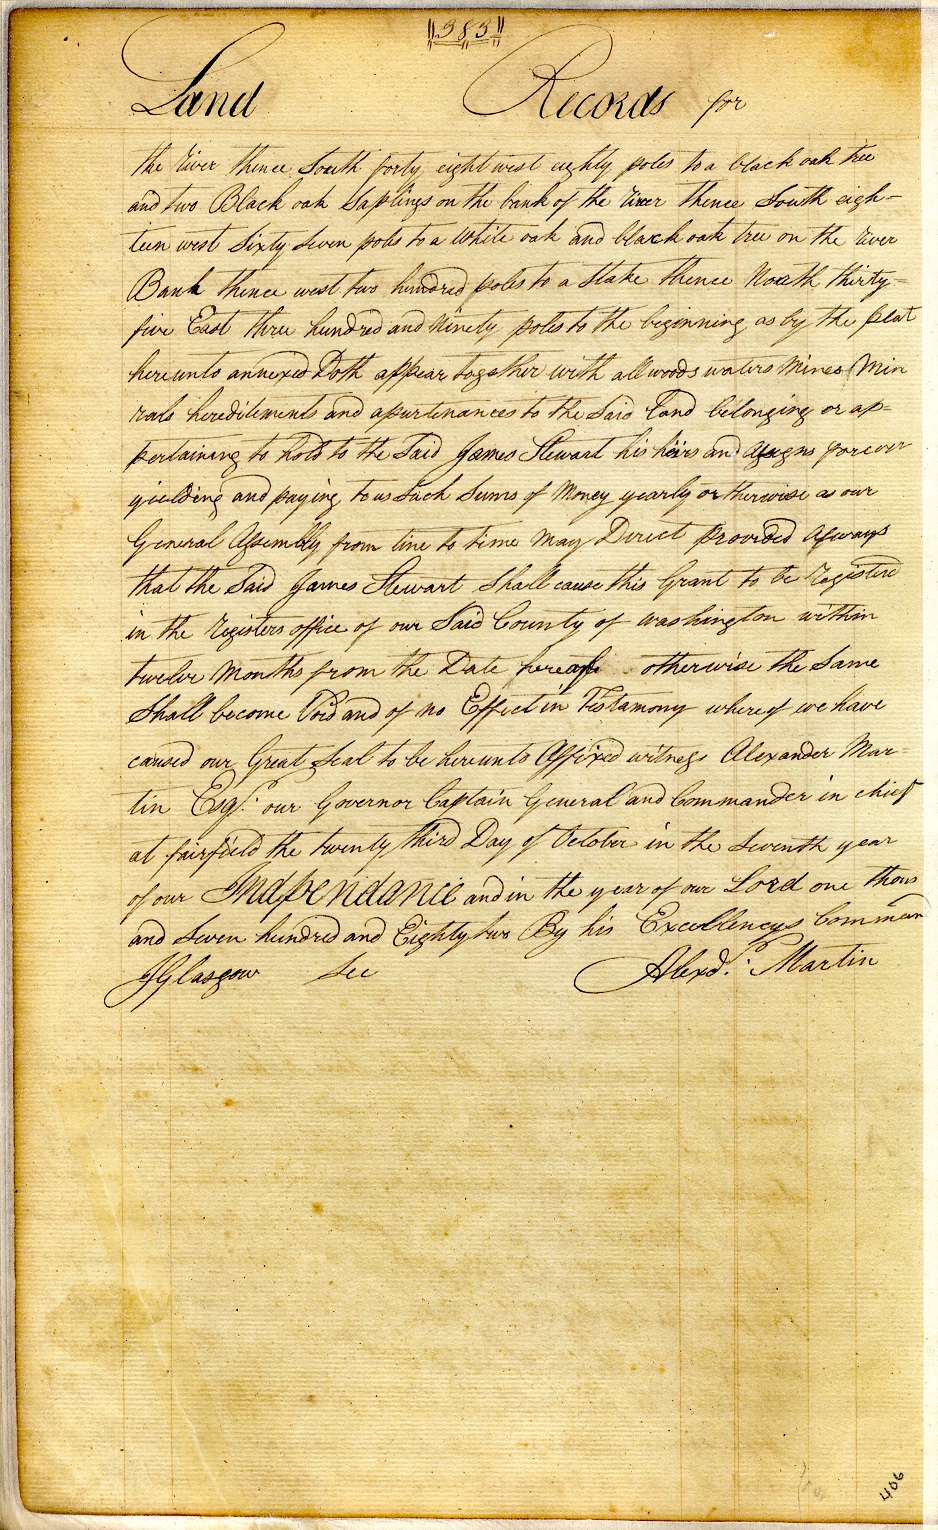 383
Land Records for
the river thence South forty eight west eighty poles to a black oak tree
and two Black oak Saplings on the bank of the river thence South eigh=
teen west Sixty Seven poles to a White oak and black oak tree on the river
Bank thence west two hundred poles to a Stake thence North thirty=
five East three hundred and Ninety poles to the beginning as by the plat
hereunto annexed Doth appear together with all woods waters Mines Min
rals hereditements and apurtenances to the Said Land belonging or ap=
pertaining to hold to the Said James Stewart his heirs and assigns forever
yielding and paying to us Such Sums of Money yearly or therwise as our
General Assembly from time to time may Direct provided always
that the Said James Stewart Shall cause this Grant to be Registerd
in the Registers office of our Said County of washington within
twelve Months from the Date hereof otherwise the Same
Shall become Void and of no Effect in Testamony whereof we have
caused our Great Seal to be hereunto Affixed witness Alexander Mar=
tin Esqr. our Governor Captain General and Commander in chief
at fairfield the twenty third Day of October in the Seventh year
of our Indpendance and in the year of our Lord one thous
and Seven hundred and Eighty two By his Excellencys Comman
JGlasgow Sec Alexdr. Martin
406